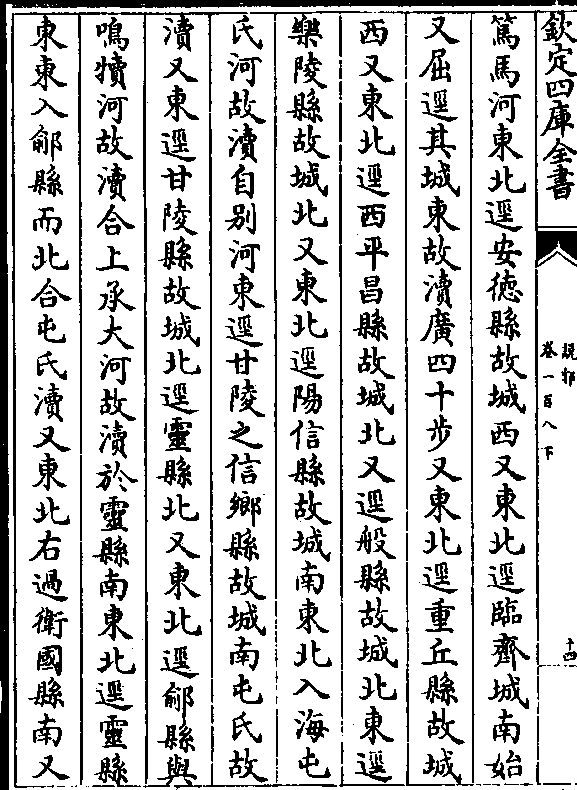 欽定四庫全書
說郛
卷一百八下
十四
篤馬河東北逕安德縣故城西又東北逕臨齊城南始
又屈逕其城東故瀆廣四十步又東北逕重丘縣故城
西又東北逕西平昌縣故城北又逕般縣故城北東逕
樂陵縣故城北又東北逕陽信縣故城南東北入海屯
氏河故瀆自別河東逕甘陵之信鄉縣故城南屯氏故
瀆又東逕甘陵縣故城北逕靈縣北又東北逕鄃縣與
鳴犢河故瀆合上承大河故瀆於靈縣南東北逕靈縣
東東入鄃縣而北合屯氏瀆又東北右過衛國縣南又